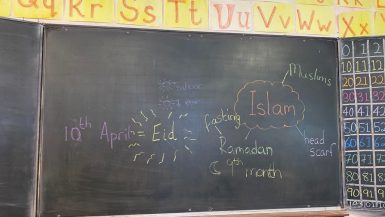 Qq Rr Ss Tt Uu Vv Ww Xx
Muslims
Islam
fasting
10th April = Eid =
Ramadan
9th month
head
scarf
0 1 2
10 11 12
20 21 22
30 31 32
40 41 42
50 51 52
60 61 62
70 71 72
80 81 82
90 91 92